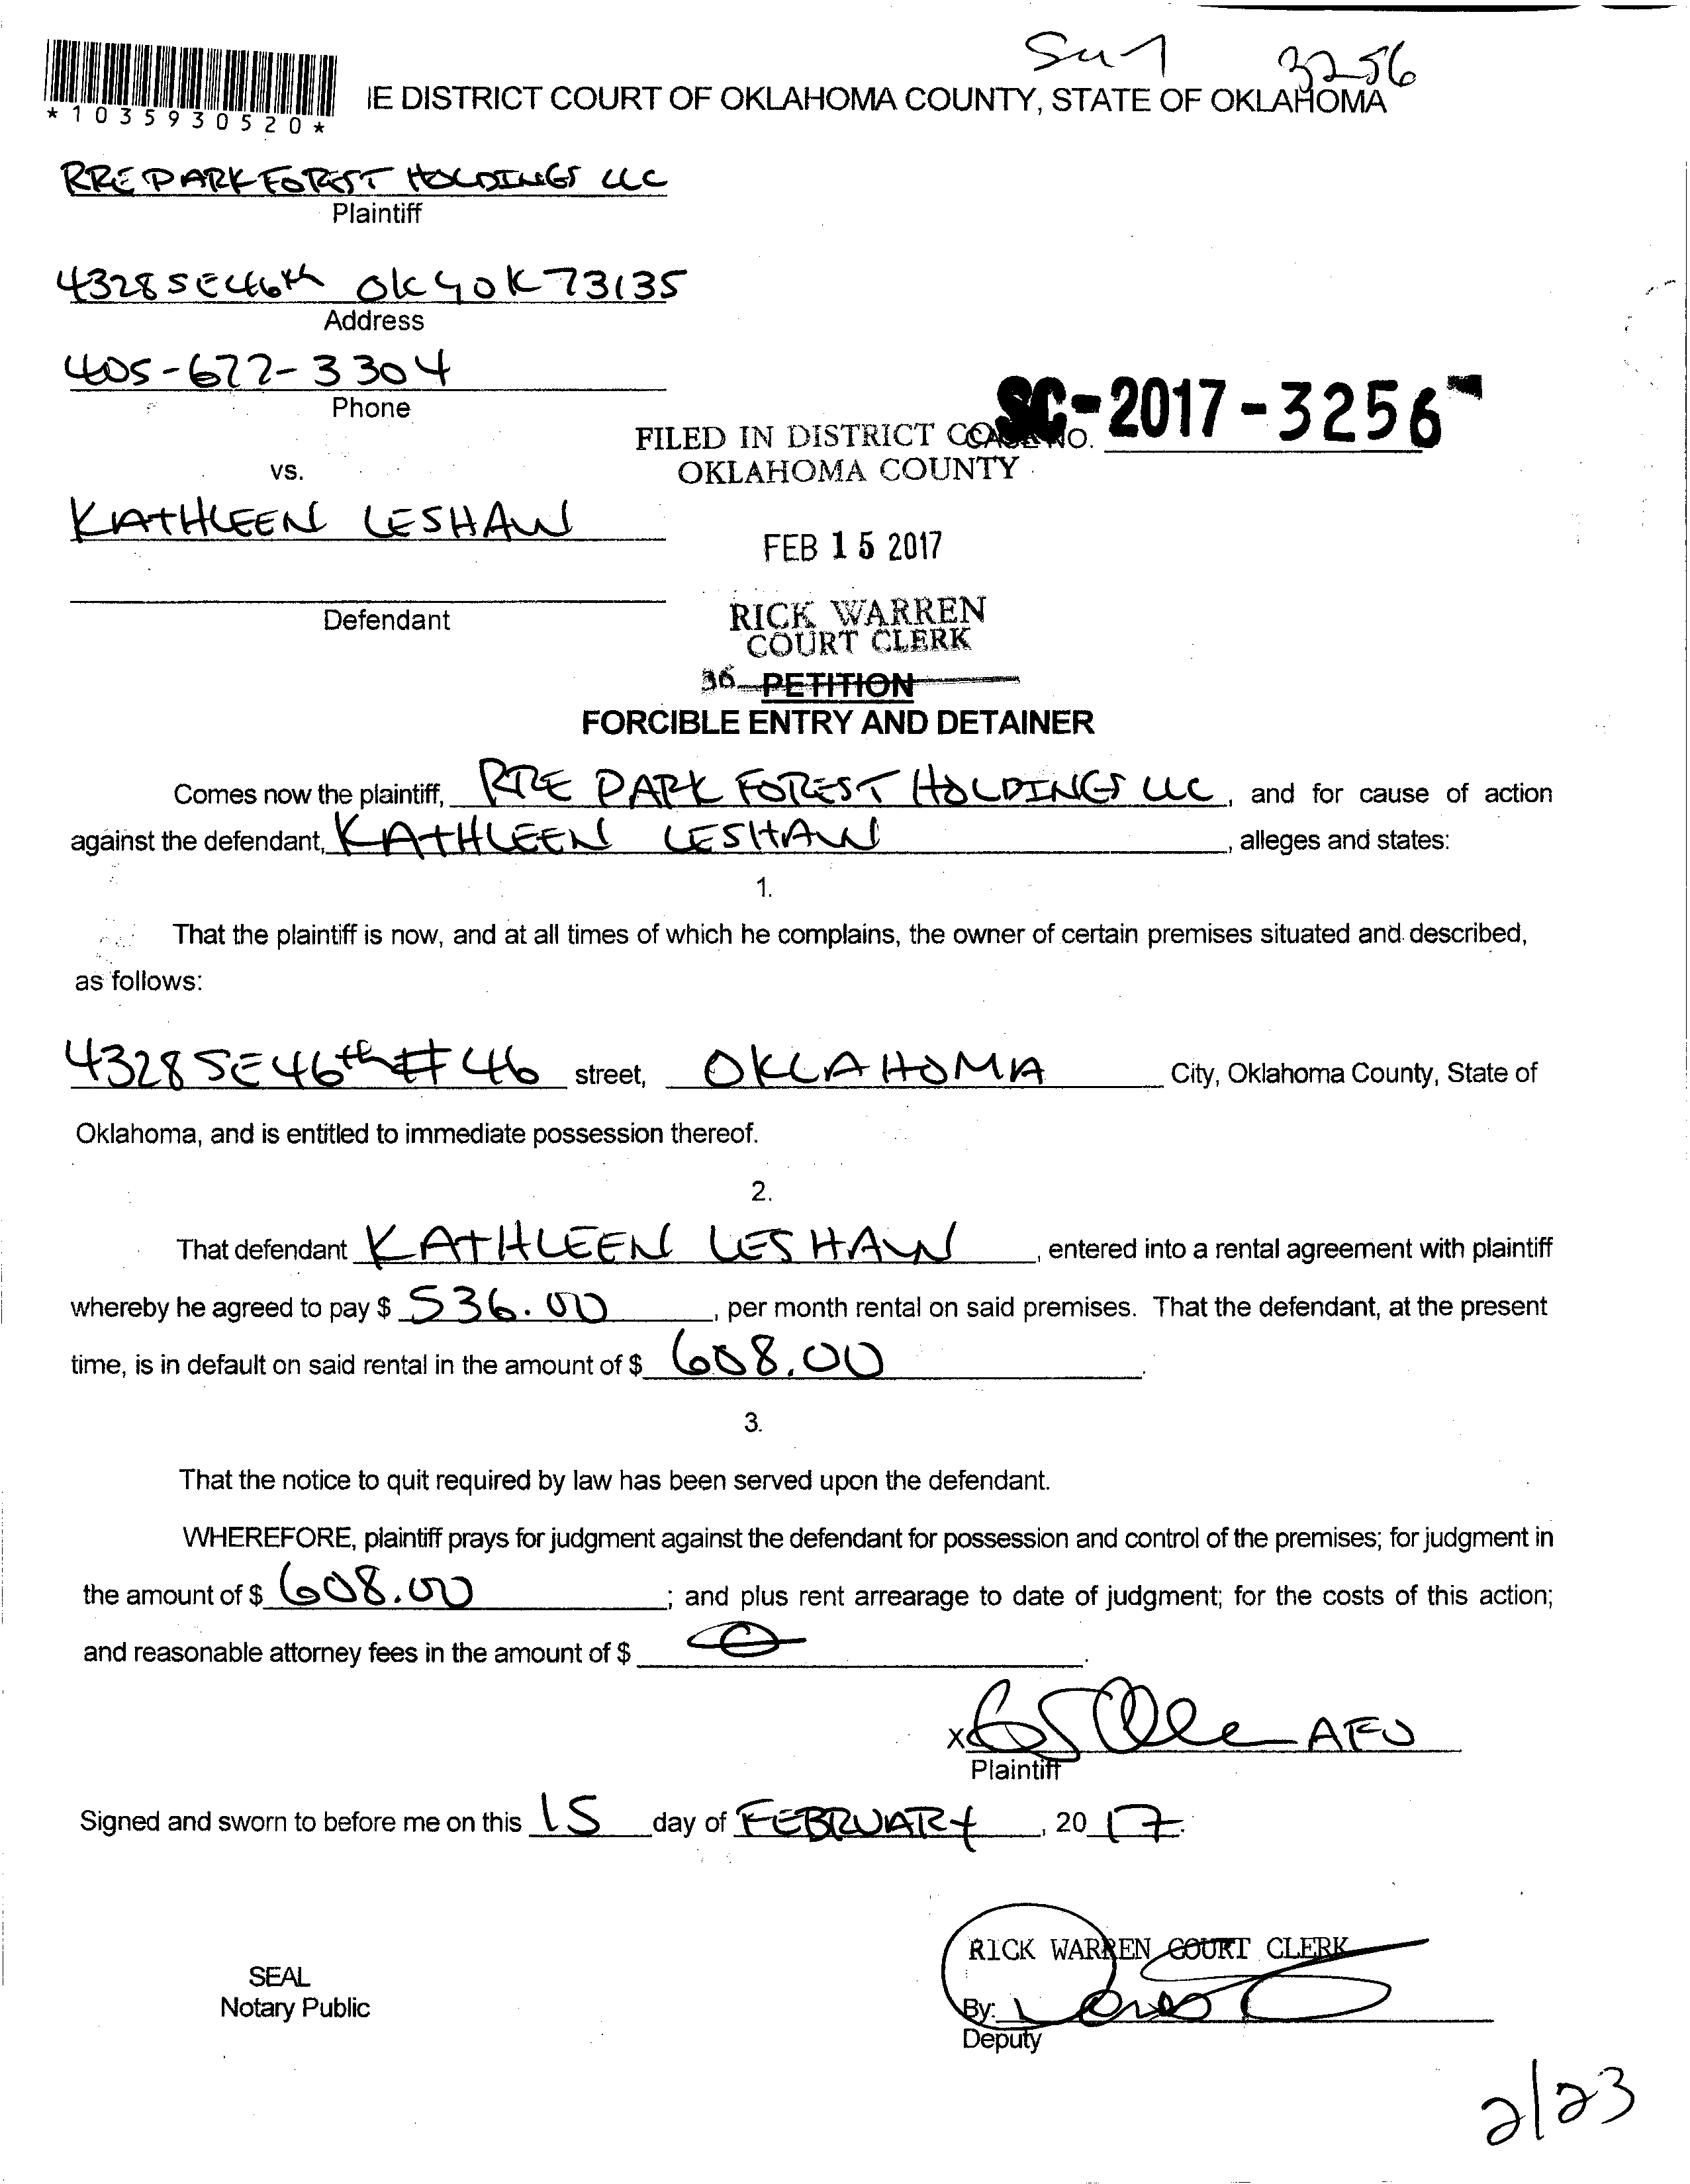 Su 1 3256
*1035930520*
IE DISTRICT COURT OF OKLAHOMA COUNTY, STATE OF OKLAHOMA
RRE PARK FOREST HOLDINGS LLC
Plaintiff
4328 SE 46th OKC OK 73135
Address
405-672-3304
Phone
SC-2017-3256
FILED IN DISTRICT CO NO.
OKLAHOMA COUNTY
vs.
KATHLEEN LESHAW
FEB 15 2017
Defendant
RICK WARREN
COURT CLERK
36 PETITION
FORCIBLE ENTRY AND DETAINER
Comes now the plaintiff, RRE PARK FOREST HOLDINGS LLC, and for cause of action
against the defendant, KATHLEEN LESHAW, alleges and states:
1.
That the plaintiff is now, and at all times of which he complains, the owner of certain premises situated and described,
as follows:
4328 SE 46th # 46 street, OKLAHOMA City, Oklahoma County, State of
Oklahoma, and is entitled to immediate possession thereof.
2.
That defendant KATHLEEN LESHAW, entered into a rental agreement with plaintiff
whereby he agreed to pay $ 536.00, per month rental on said premises. That the defendant, at the present
time, is in default on said rental in the amount of $ 608.00.
3.
That the notice to quit required by law has been served upon the defendant.
WHEREFORE, plaintiff prays for judgment against the defendant for possession and control of the premises; for judgment in
the amount of $ 608.00; and plus rent arrearage to date of judgment; for the costs of this action;
and reasonable attorney fees in the amount of $ 0.
X AFJ
Plaintiff
Signed and sworn to before me on this 15 day of FEBRUARY, 20 17.
RICK WARREN COURT CLERK
SEAL
Notary Public
By:
Deputy
2/23